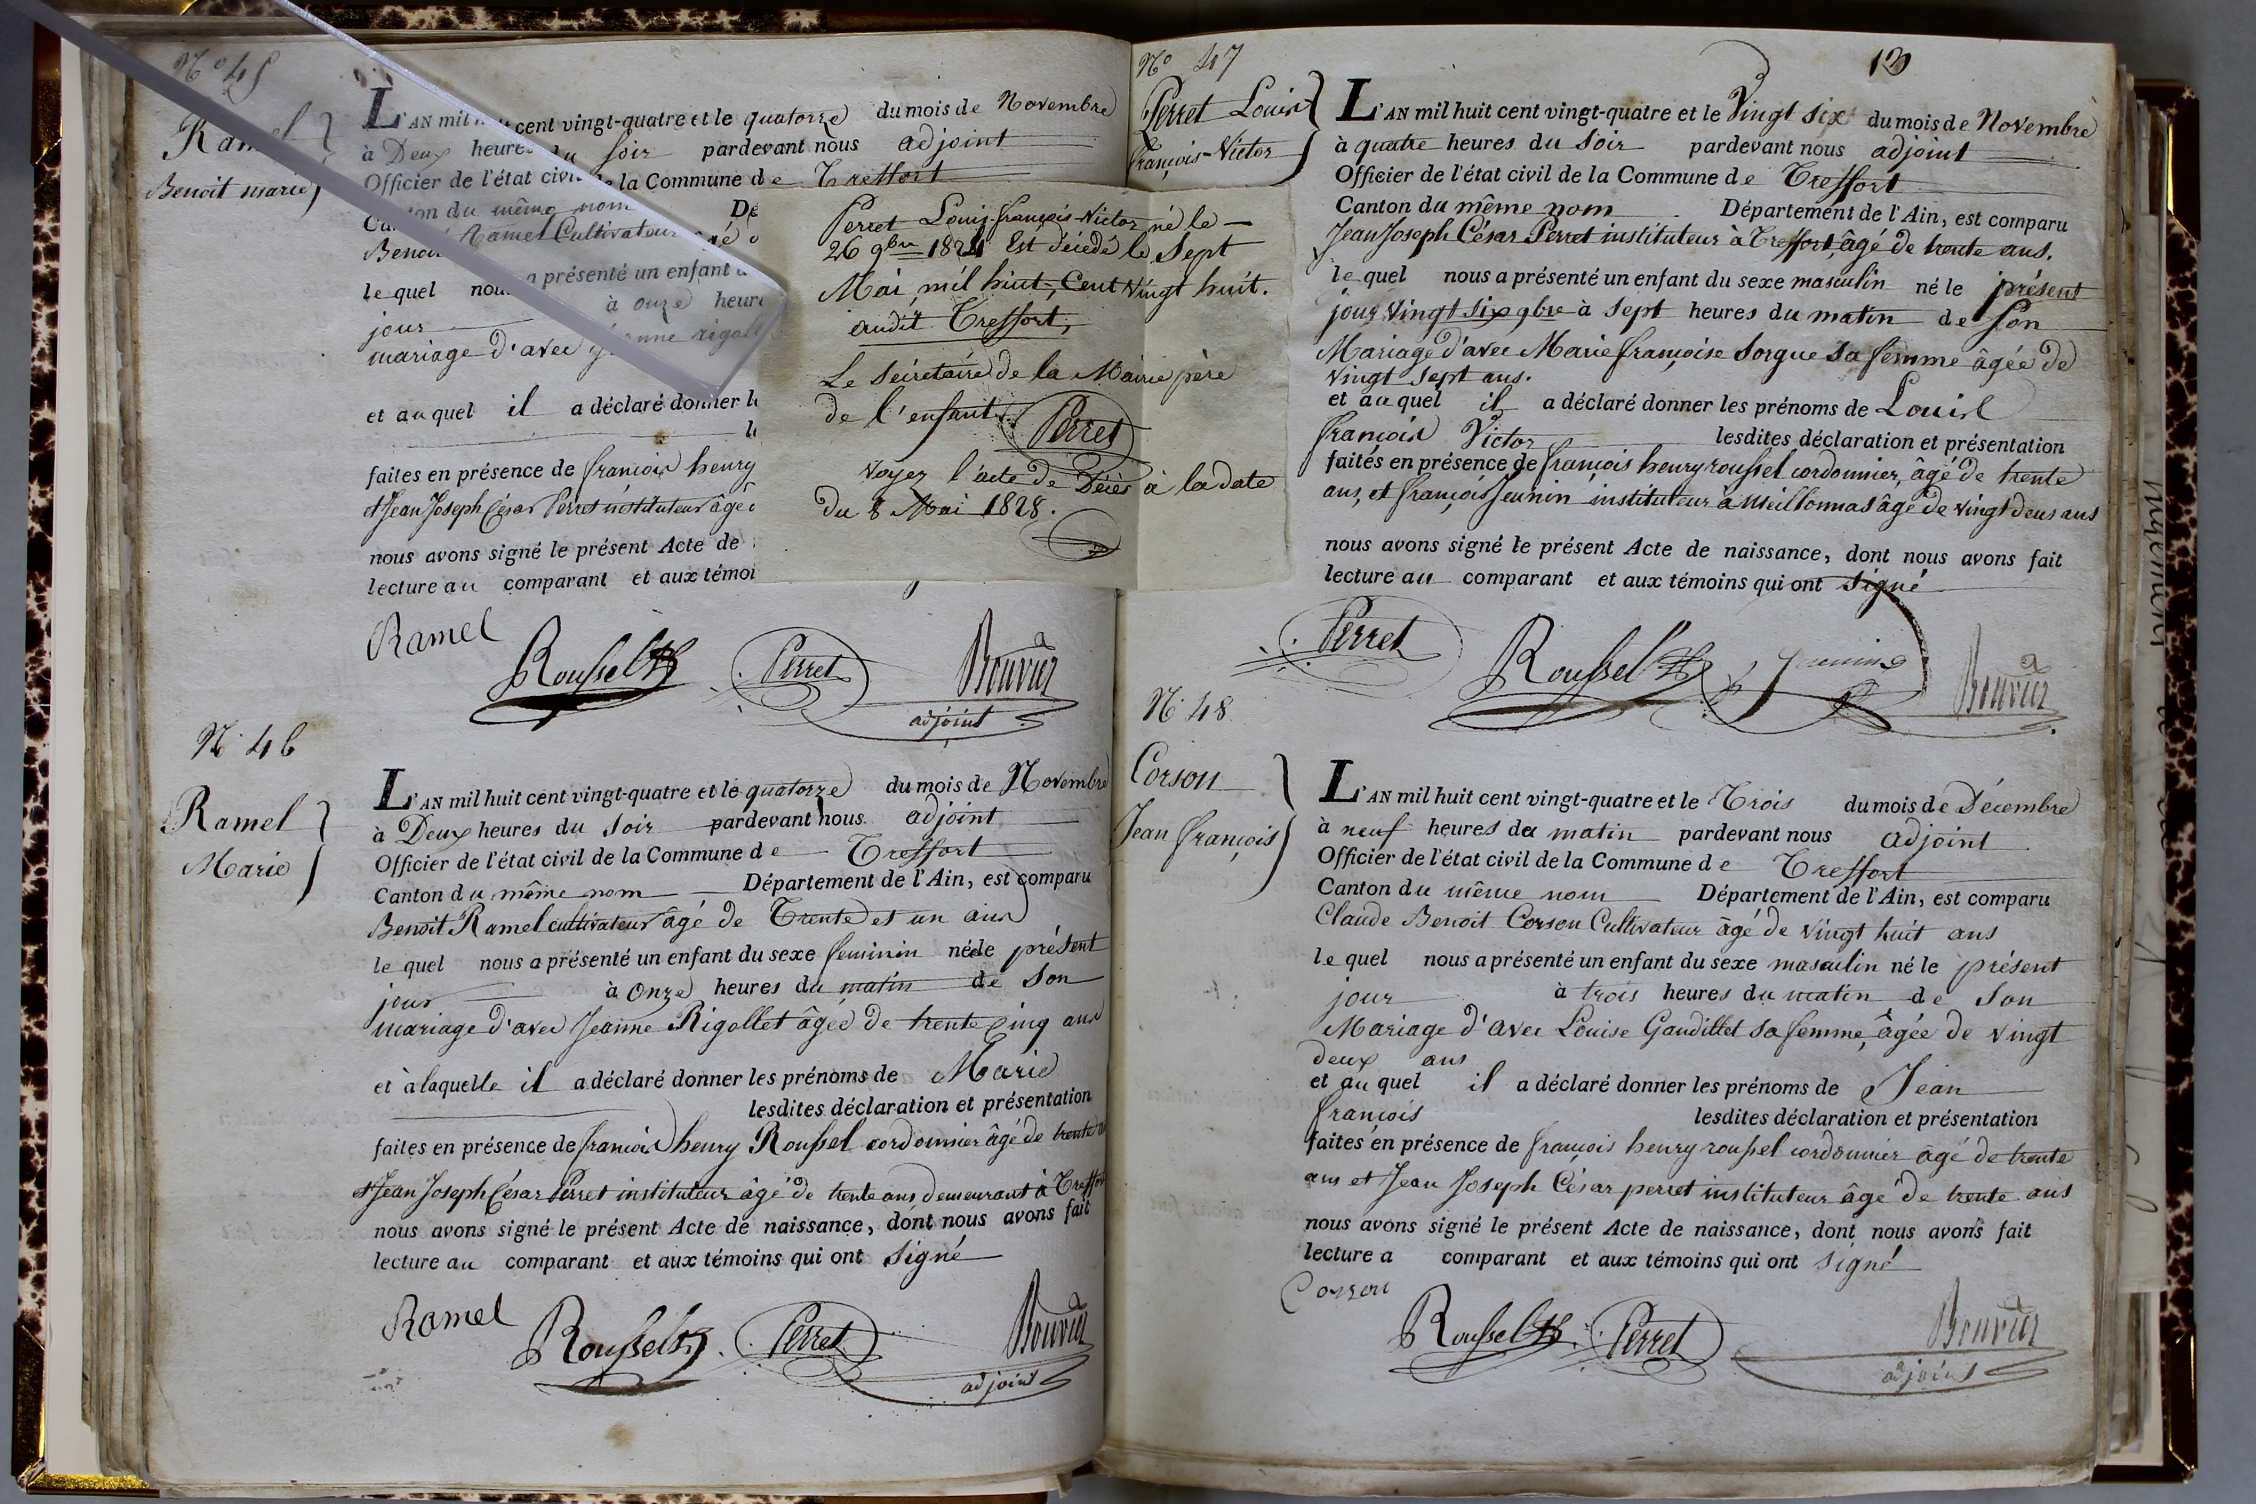 N° 45
Ramel
Benoit marie
L'AN mil huit cent vingt-quatre et le quatorze du mois de Novembre
à Deux heures du soir pardevant nous adjoint
Officier de l'état civil de la Commune de Treffort
Canton du même nom Dé
Benoit Ramel Cultivateur âgé
le quel nous a présenté un enfant
jour à onze heure
mariage d'avec Jeanne rigollet
et au quel il a déclaré donner le
le
faites en présence de françois henry
et Jean Joseph César Perret instituteur âgé
nous avons signé le présent Acte de
lecture au comparant et aux témoi
Ramel Roussel Perret Bouvier
adjoint
Perret Louis-françois-Victor né le
26 9bre 1824 Est décédé le Sept
Mai, mil huit-Cent Vingt huit.
audit Treffort,
Le Sécrétaire de la Mairie père
de l'enfant.
Perret
Voyez l'acte de Décès à la date
du 8 Mai 1828.
N° 46
Ramel
Marie
L'AN mil huit cent vingt-quatre et le quatorze du mois de Novembre
à Deux heures du soir pardevant nous adjoint
Officier de l'état civil de la Commune de Treffort
Canton du même nom Département de l'Ain, est comparu
Benoit Ramel cultivateur âgé de Trente et un ans
le quel nous a présenté un enfant du sexe feminin née le présent
jour à Onze heures du matin de son
mariage d'avec Jeanne Rigollet âgée de trente cinq ans
et à laquelle il a déclaré donner les prénoms de Marie
lesdites déclaration et présentation
faites en présence de francois henry Roussel cordonnier âgé de trente
et Jean Joseph César Perret instituteur âgé de trente ans demeurant à Treffort
nous avons signé le présent Acte de naissance, dont nous avons fait
lecture au comparant et aux témoins qui ont signé
Ramel Roussel Perret Bouvier
adjoint
13
N° 47
Perret Louis
françois-Victor
L'AN mil huit cent vingt-quatre et le Vingt six du mois de Novembre
à quatre heures du soir pardevant nous adjoint
Officier de l'état civil de la Commune de Treffort
Canton du même nom Département de l'Ain, est comparu
Jean Joseph César Perret instituteur à Treffort, âgé de trente ans.
le quel nous a présenté un enfant du sexe masculin né le présent
jour Vingt six 9bre à sept heures du matin de son
Mariage d'avec Marie françoise Sorgue sa femme âgée de
vingt sept ans.
et au quel il a déclaré donner les prénoms de Louis
françois Victor lesdites déclaration et présentation
faites en présence de françois henry roussel cordonnier, âgé de trente
ans, et françois Jeunin instituteur à Meillonnas âgé de vingt deux ans
nous avons signé le présent Acte de naissance, dont nous avons fait
lecture au comparant et aux témoins qui ont signé
Perret Roussel Bouvier
N° 48
Corson
Jean françois
L'AN mil huit cent vingt-quatre et le Trois du mois de Décembre
à neuf heures du matin pardevant nous adjoint
Officier de l'état civil de la Commune de Treffort
Canton du même nom Département de l'Ain, est comparu
Claude Benoit Corson Cultivateur âgé de vingt huit ans
le quel nous a présenté un enfant du sexe masculin né le présent
jour à trois heures du matin de son
Mariage d'avec Louise Gaudillet sa femme, âgée de vingt
deux ans
et au quel il a déclaré donner les prénoms de Jean
françois lesdites déclaration et présentation
faites en présence de françois henry roussel cordonnier âgé de trente
ans et Jean Joseph César perret instituteur âgé de trente ans
nous avons signé le présent Acte de naissance, dont nous avons fait
lecture a comparant et aux témoins qui ont signé
Corson
Roussel Perret Bouvier
adjoint